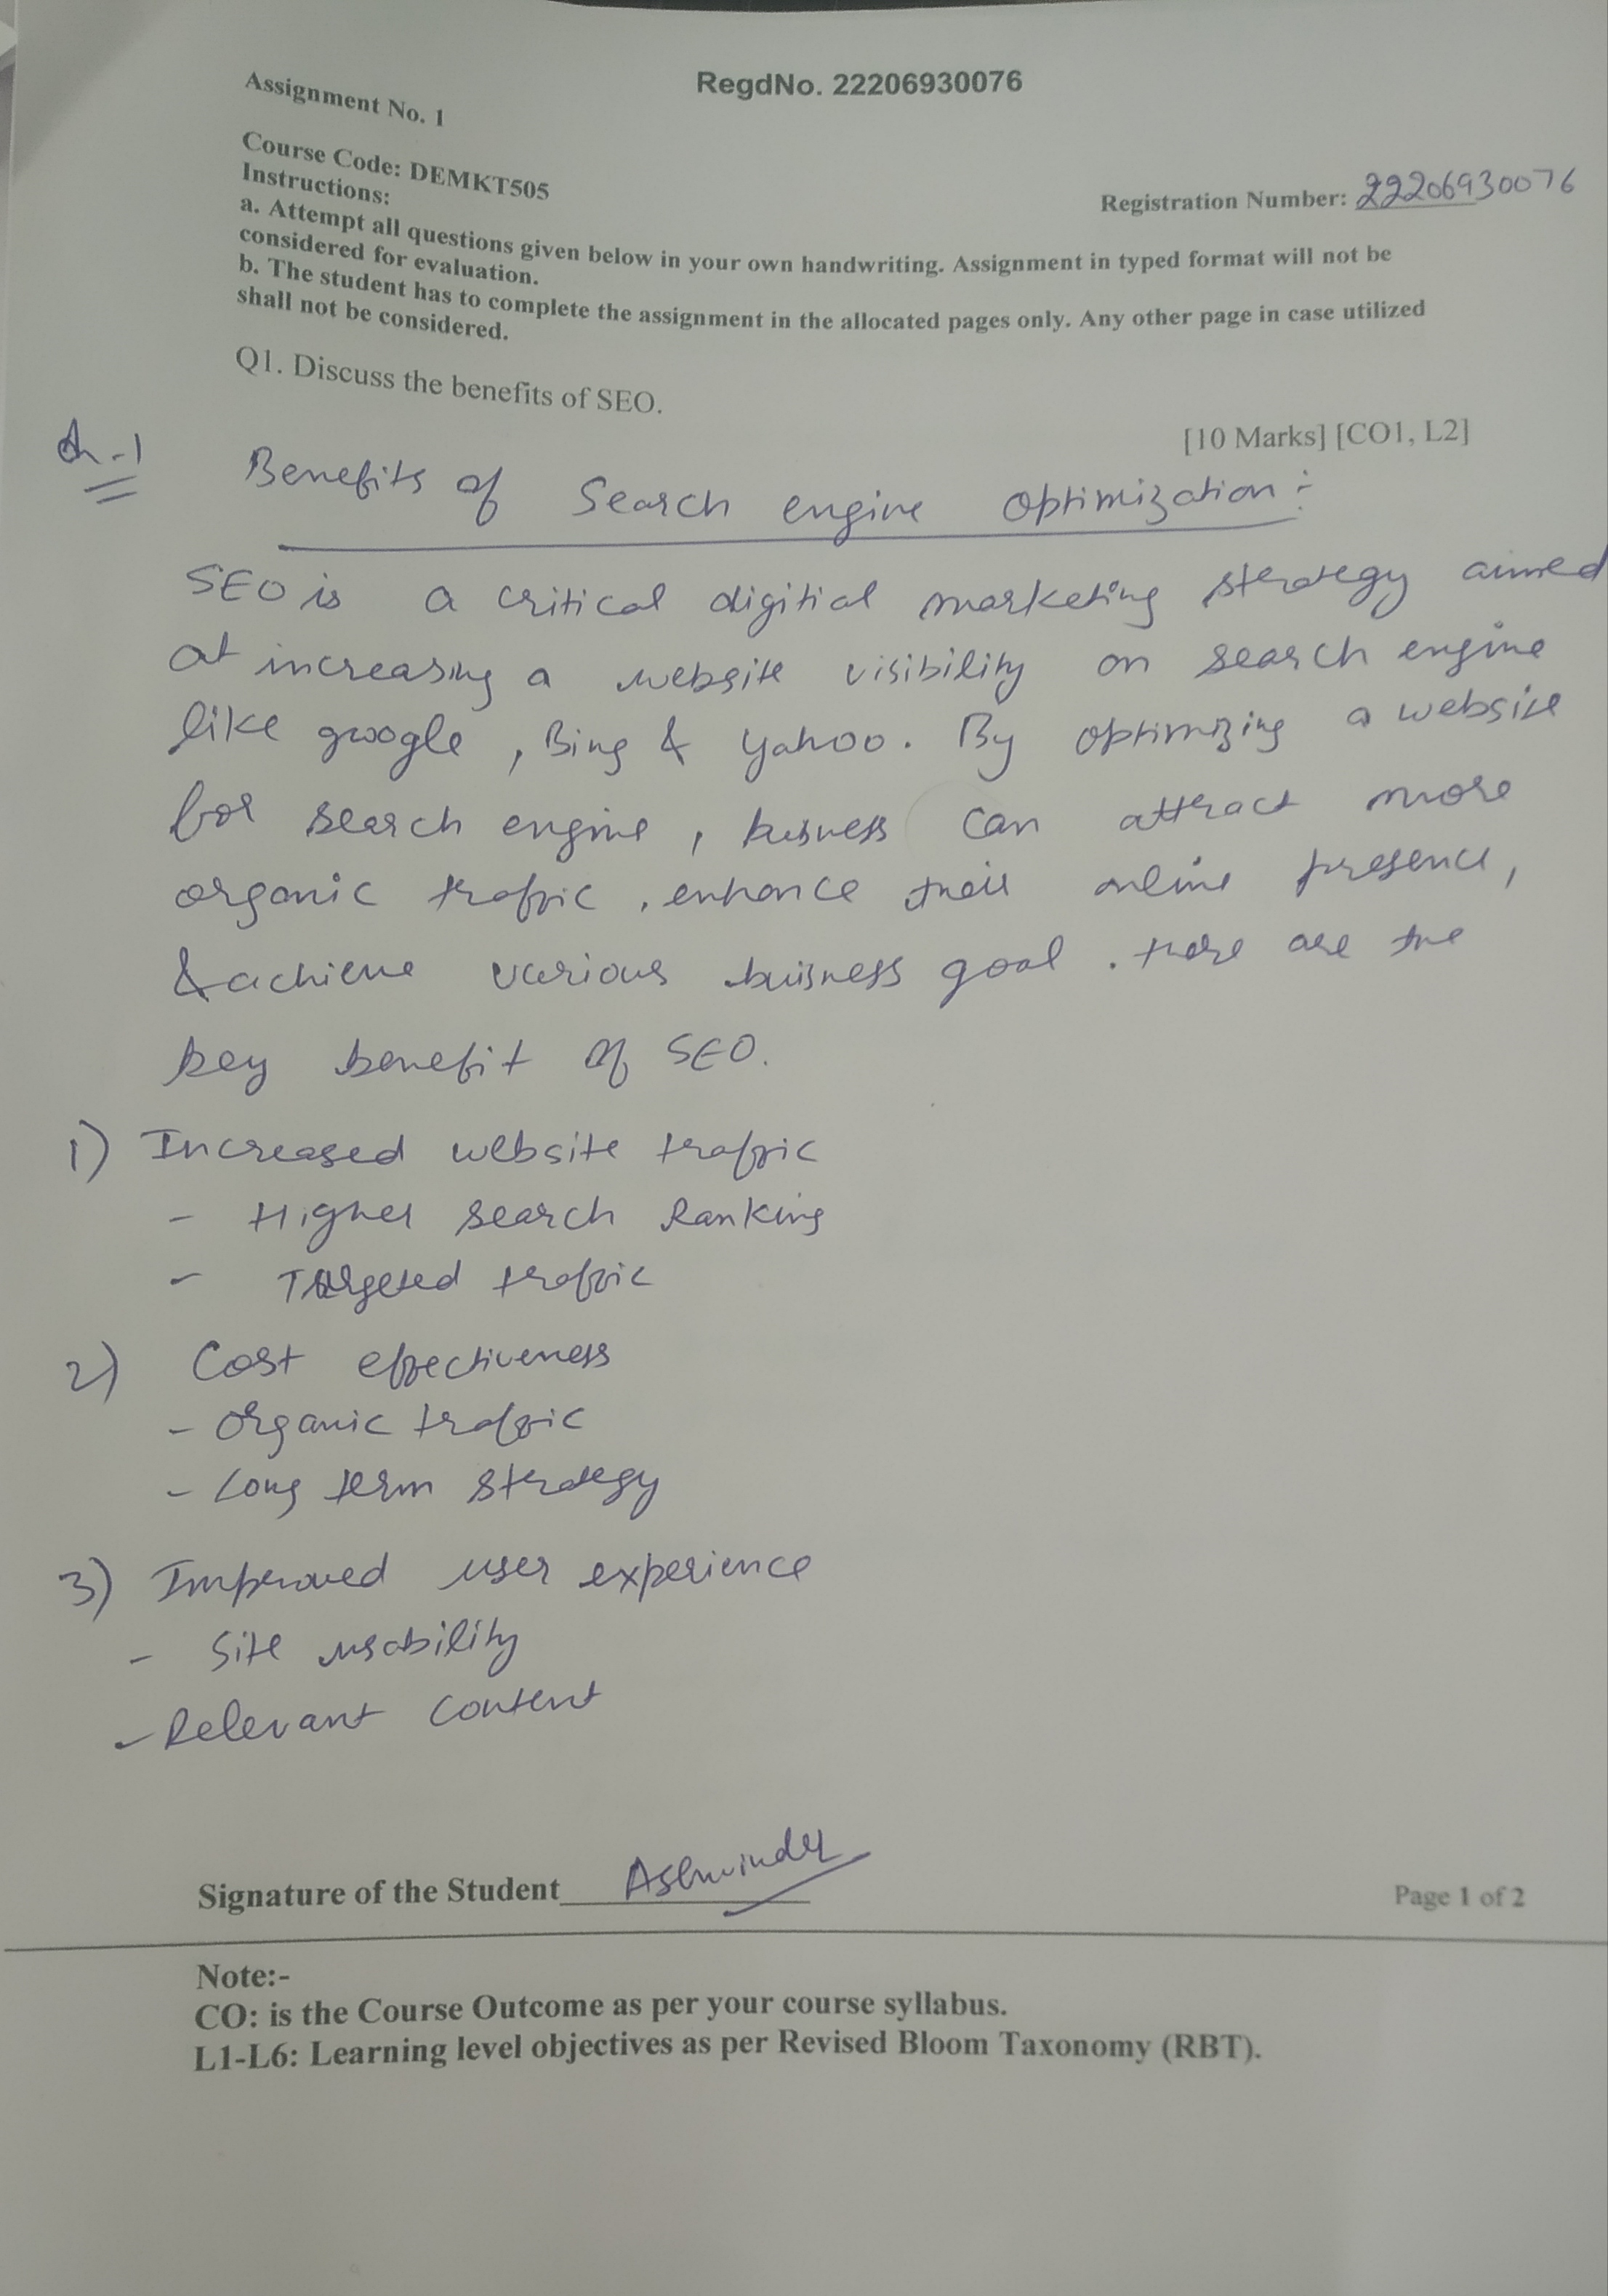 RegdNo. 22206930076
Assignment No. 1
Course Code: DEMKT505
Registration Number: 22206930076
Instructions:
a. Attempt all questions given below in your own handwriting. Assignment in typed format will not be
considered for evaluation.
b. The student has to complete the assignment in the allocated pages only. Any other page in case utilized
shall not be considered.
Q1. Discuss the benefits of SEO.
[10 Marks] [CO1, L2]
Benefits of Search engine Optimization :-
SEO is a critical digitial marketing strategy aimed
at increasing a website visibility on search engine
like google , Bing & Yahoo. By optimizing a website
for search engine, business can attract more
organic traffic , enhance their online presence,
& achieve various buisness goal . there are the
key benefit of SEO.
1) Increased website traffic
- Higher search Ranking
- Targeted traffic
2) Cost effectiveness
- Organic traffic
- Long term strategy
3) Improved user experience
- Site usability
- Relevant content
Signature of the Student
Page 1 of 2
Note:-
CO: is the Course Outcome as per your course syllabus.
L1-L6: Learning level objectives as per Revised Bloom Taxonomy (RBT).